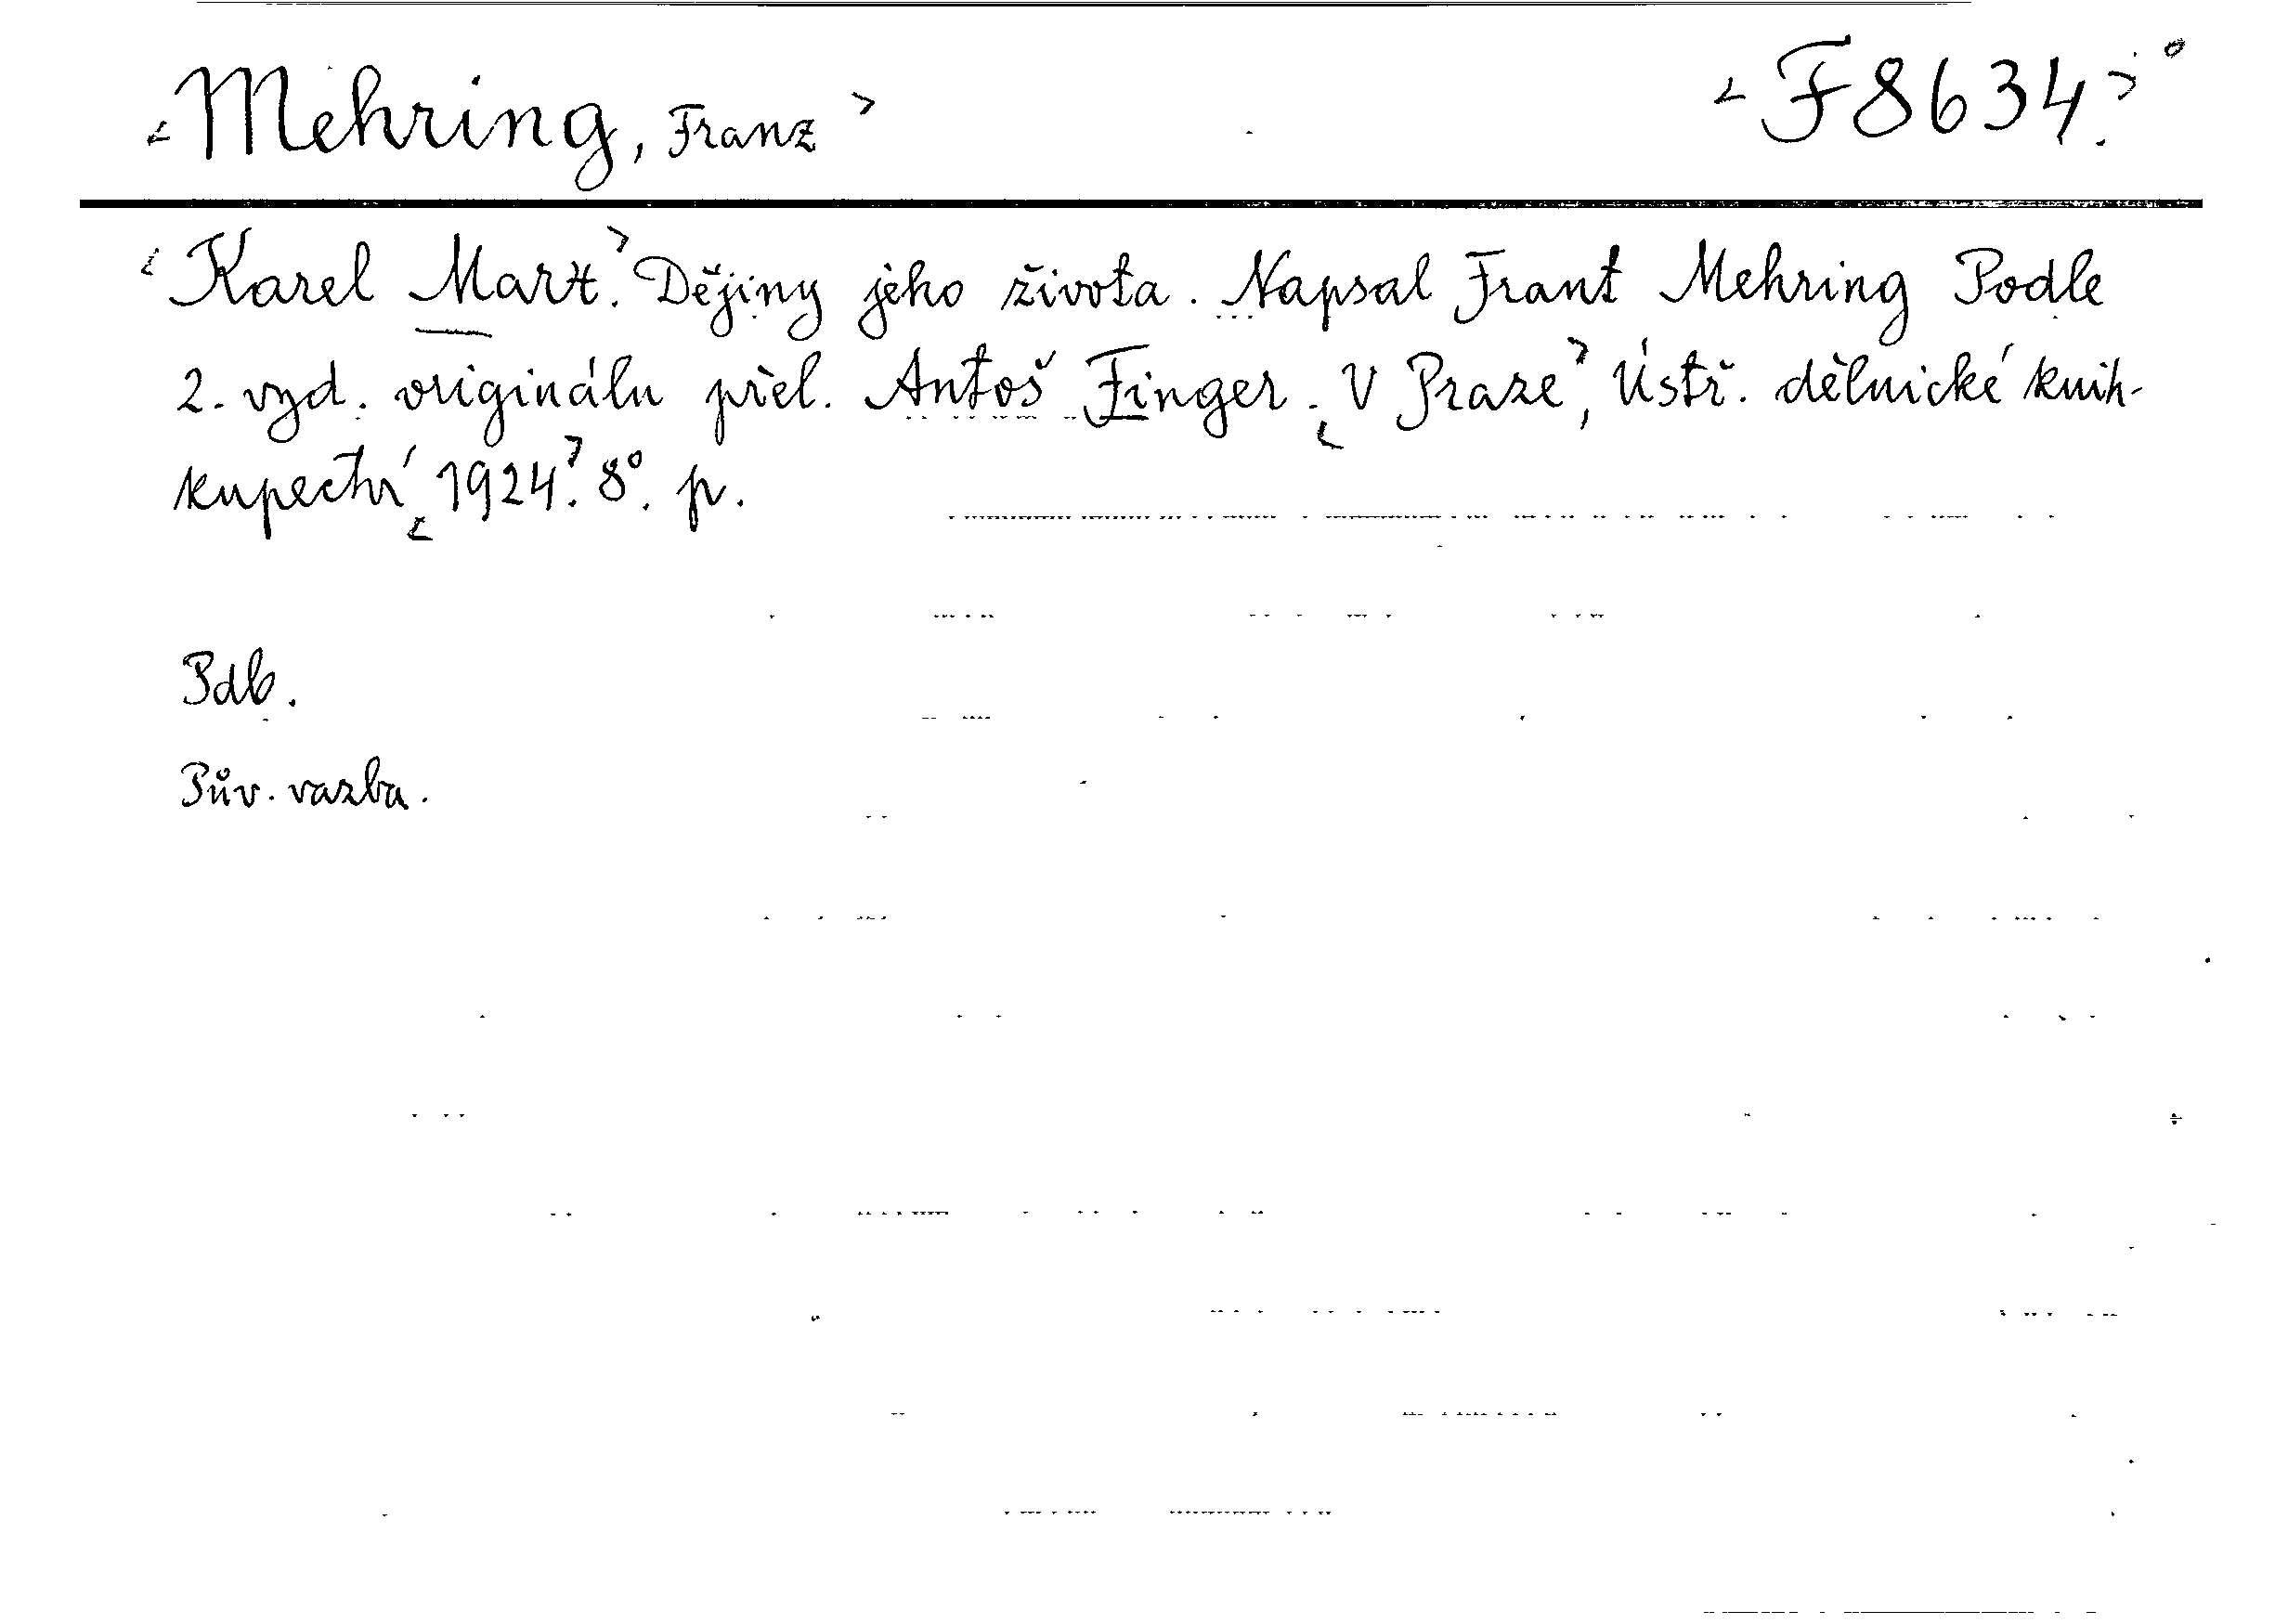 <Mehring, Franz> <F 8634.>
<Karel Marx.> Dějiny jeho života. Napsal Frant Mehring Podle
2. vyd. originálu přel. Antoš Finger. <V Praze>, Ústř. dělnické knih-
kupectví <1924.> 8°. p.
Pdb.
Pův. vazba.